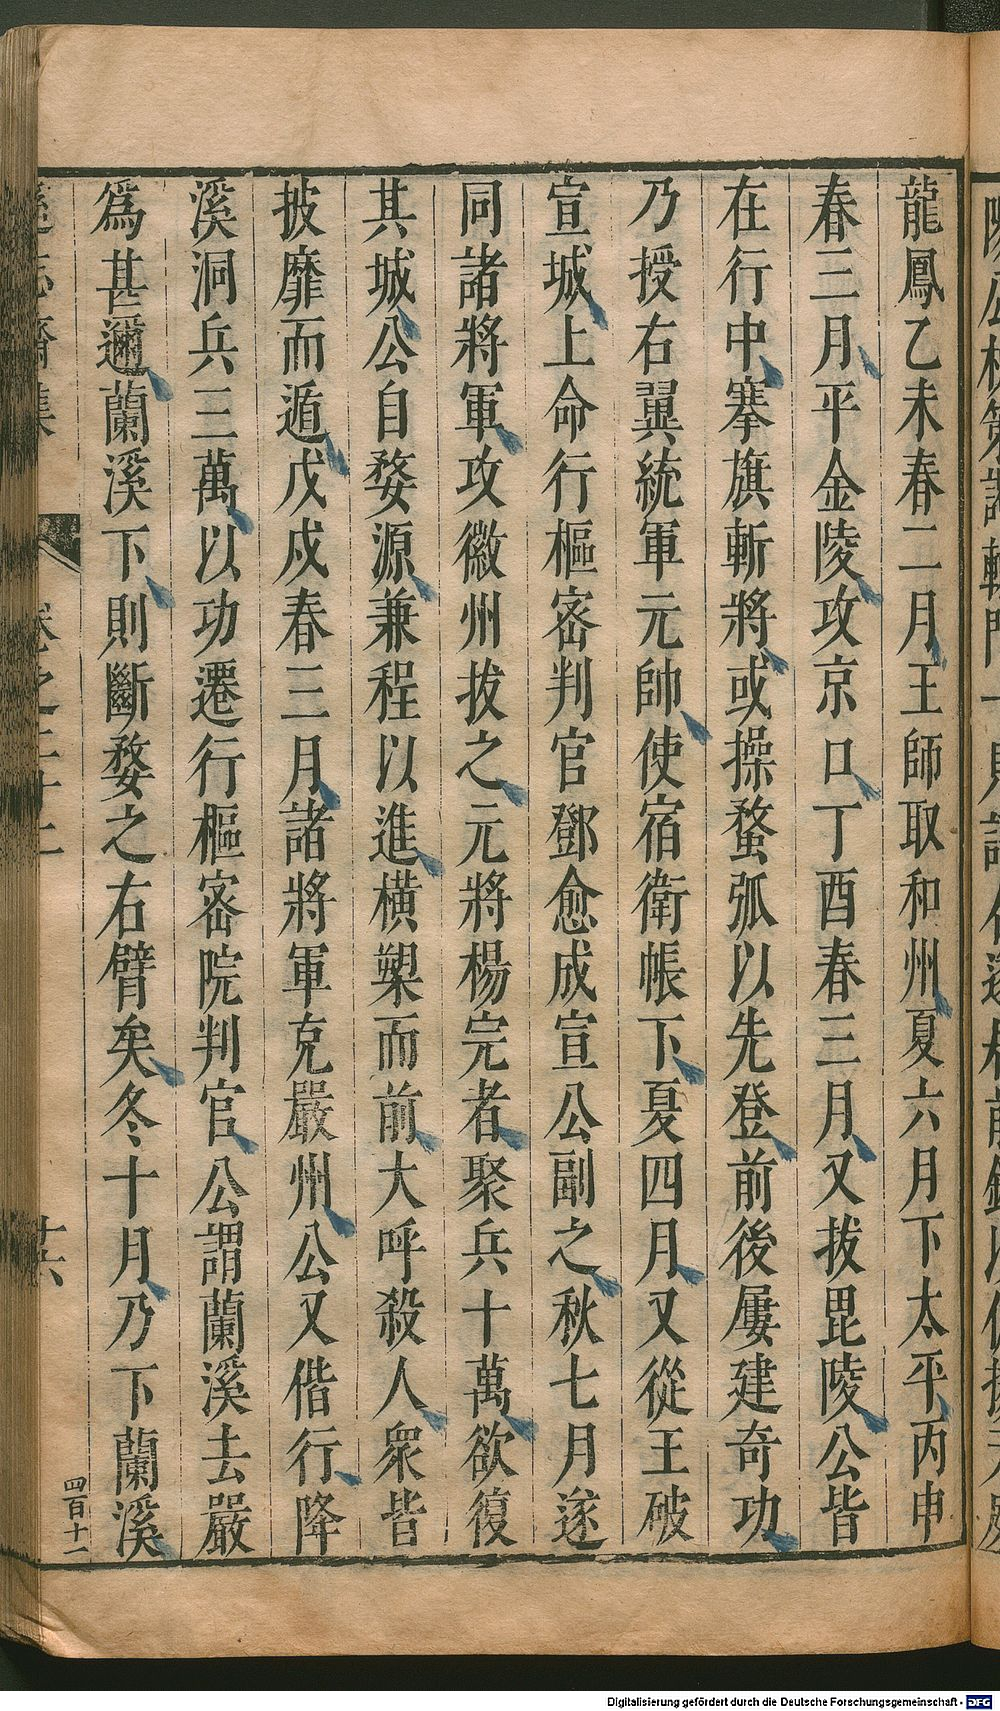 龍鳳乙未春二月王師取和州夏六月下太平丙申
春三月平金陵攻京口丁酉春三月又拔毘陵公皆
在行中搴旗斬將或操蝥弧以先登前後屢建奇功
乃授右翼統軍元帥使宿衛帳下夏四月又從王破
宣城上命行樞密判官鄧愈成宣公副之秋七月遂
同諸將軍攻徽州拔之元將楊完者聚兵十萬欲復
其城公自婺源兼程以進橫槊而前大呼殺人眾皆
披靡而遁戊戌春三月諸將軍克嚴州公又偕行降
溪洞兵三萬以功遷行樞密院判官公謂蘭溪去嚴
爲甚邇蘭溪下則斷婺之右臂矣冬十月乃下蘭溪
卷之二十二
十六
四百十一
Digitalisierung gefördert durch die Deutsche Forschungsgemeinschaft - DFG